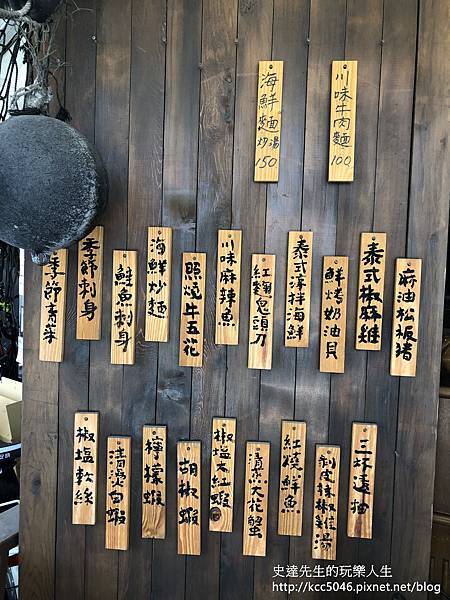 川味牛肉麵 100
海鮮麵 炒.湯 150
麻油松板豬
泰式椒麻雞
鮮烤奶油貝
泰式涼拌海鮮
紅麴鬼頭刀
川味麻辣魚
照燒牛五花
海鮮炒麵
鮭魚刺身
季節刺身
季節青菜
三杯透抽
剝皮辣椒雞湯
紅燒鮮魚
清蒸大花蟹
椒塩大紅蝦
胡椒蝦
檸檬蝦
清燙白蝦
椒塩軟絲
史達先生的玩樂人生
http://kcc5046.pixnet.net/blog